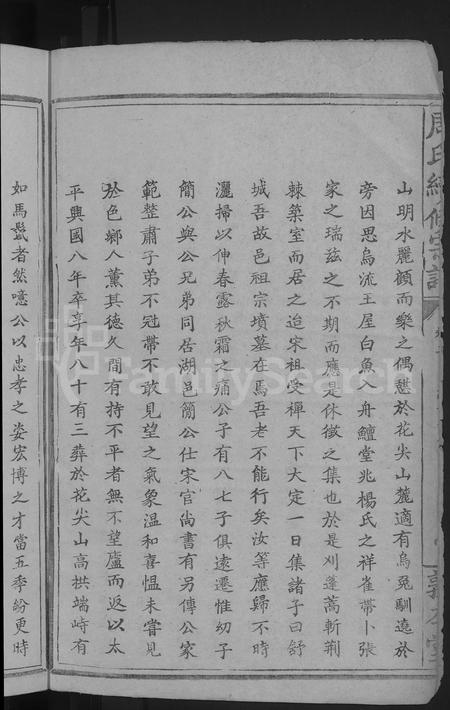 周氏續修宗譜
山明水麗顧而樂之偶憇於花尖山麓適有烏兎馴遶於
旁因思烏流王屋白魚入舟鱣堂兆楊氏之祥雀帶卜張
家之瑞茲之不期而應是休徵之集也於是刈蓬蒿斬荆
棘築室而居之迨宋祖受禪天下大定一日集諸子曰舒
城吾故邑祖宗墳墓在焉吾老不能行矣汝等應歸不時
灑掃以伸春露秋霜之痛公子有八七子俱遠遷惟幼子
簡公與公兄弟同居湖邑簡公仕宋官尚書有另傳公家
範整肅子弟不冠帶不敢見望之氣象温和喜愠未嘗見
於色鄉人薰其德久間有持不平者無不望廬而返以太
平興國八年卒享年八十有三葬於花尖山高拱端峙有
如馬鬣者然噫公以忠孝之姿宏博之才當五季紛更時
FamilySearch